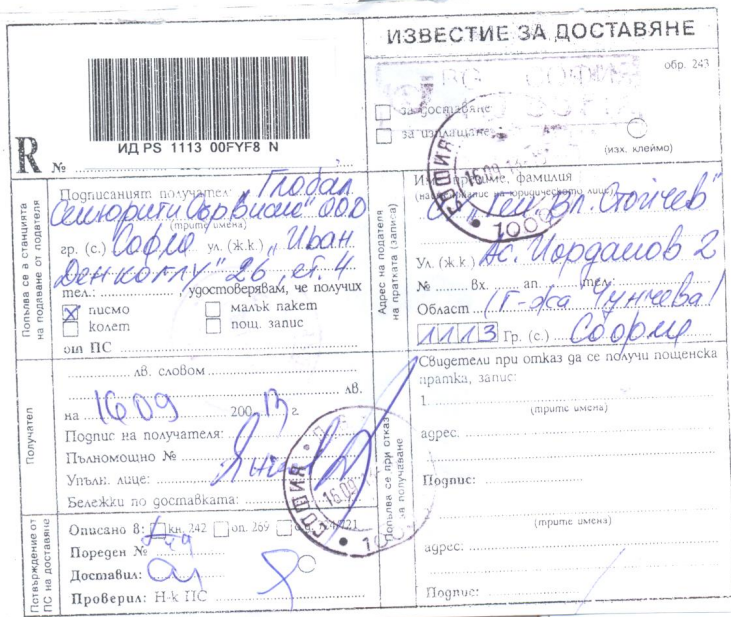 ИЗВЕСТИЕ ЗА ДОСТАВЯНЕ
обр. 243
за доставяне
за изплащане
(изх. клеймо)
ИД PS 1113 00FYF8 N
R №
Попълва се в станцията на подаване от подателя
Подписаният получател: "Глобал
Секюрити Сървисис" ООД
(трите имена)
гр. (с.) София ул. (ж.к.) "Иван
Денкоглу" 26, ет. 4
тел.: , удостоверявам, че получих
X писмо малък пакет
колет пощ. запис
от ПС
Адрес на подателя на пратката (записа)
Име, презиме, фамилия
(наименование на юридическото лице)
"Ген. Вл. Стойчев"
Ул. (ж.к.) Ас. Йорданов 2
№ Вх. ап. тел.
Област (Г-жа Чунчева)
1113 Гр. (с.) София
Получател
лв. словом
лв.
на 16 09 2013 г.
Подпис на получателя:
Пълномощно №
Упълн. лице:
Бележки по доставката:
Попълва се при отказ за получаване
Свидетели при отказ да се получи пощенска
пратка, запис:
1.
(трите имена)
адрес.
Подпис:
(трите имена)
адрес:
Подпис:
Потвърждение от ПС на доставяне
Описано в: кн. 242 оп. 269
Пореден №
Доставил:
Проверил: Н-к ПС
СОФИЯ
16.09
1000
СОФИЯ
16.09